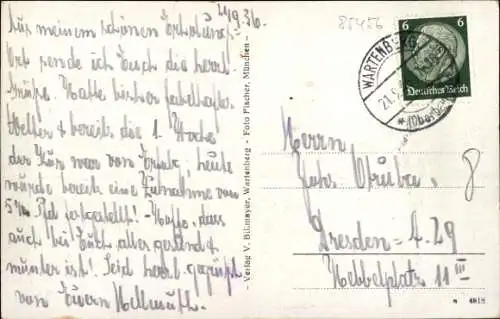 21.9.36.
Aus meinem schönen Erholungs-
Ort sende ich Euch die herzl.
Grüße. Hatte bisher fabelhaftes
Wetter & bereits die 1. Woche
der Kur war von Erfolg, heute
wurde bereits eine Zunahme von
5 ½ Pfd festgestellt! - Hoffe, dass
auch bei Euch alles gesund &
munter ist! Seid herzl. gegrüsst
von Euern Hellmuth.
Verlag V. Billmayer, Wartenberg - Foto Fischer, München
85456
6
Deutsches Reich
WARTENBERG
21.9.
(Oberbay)
Herrn
8
Dresden-A. 29
Hebbelplatz 11 III